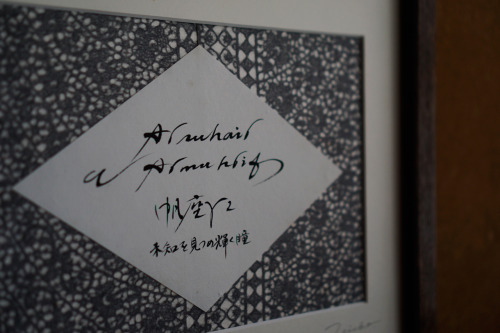 Alsuhail
Almuhlif
帆座γ2
未知を見つめ輝く瞳